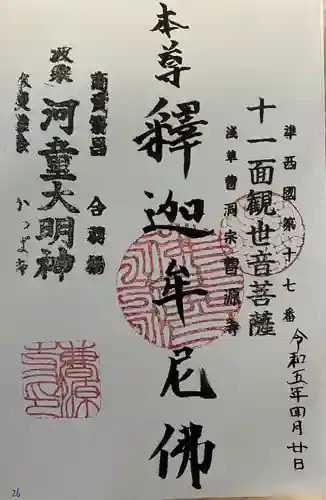 準西國第十七番
十一面觀世音菩薩
浅草曹洞宗曹源寺
令和五年四月廿日
本尊
釋迦牟尼佛
商賣繁昌
合羽橋
河童大明神
かっぱ寺
曹源
26